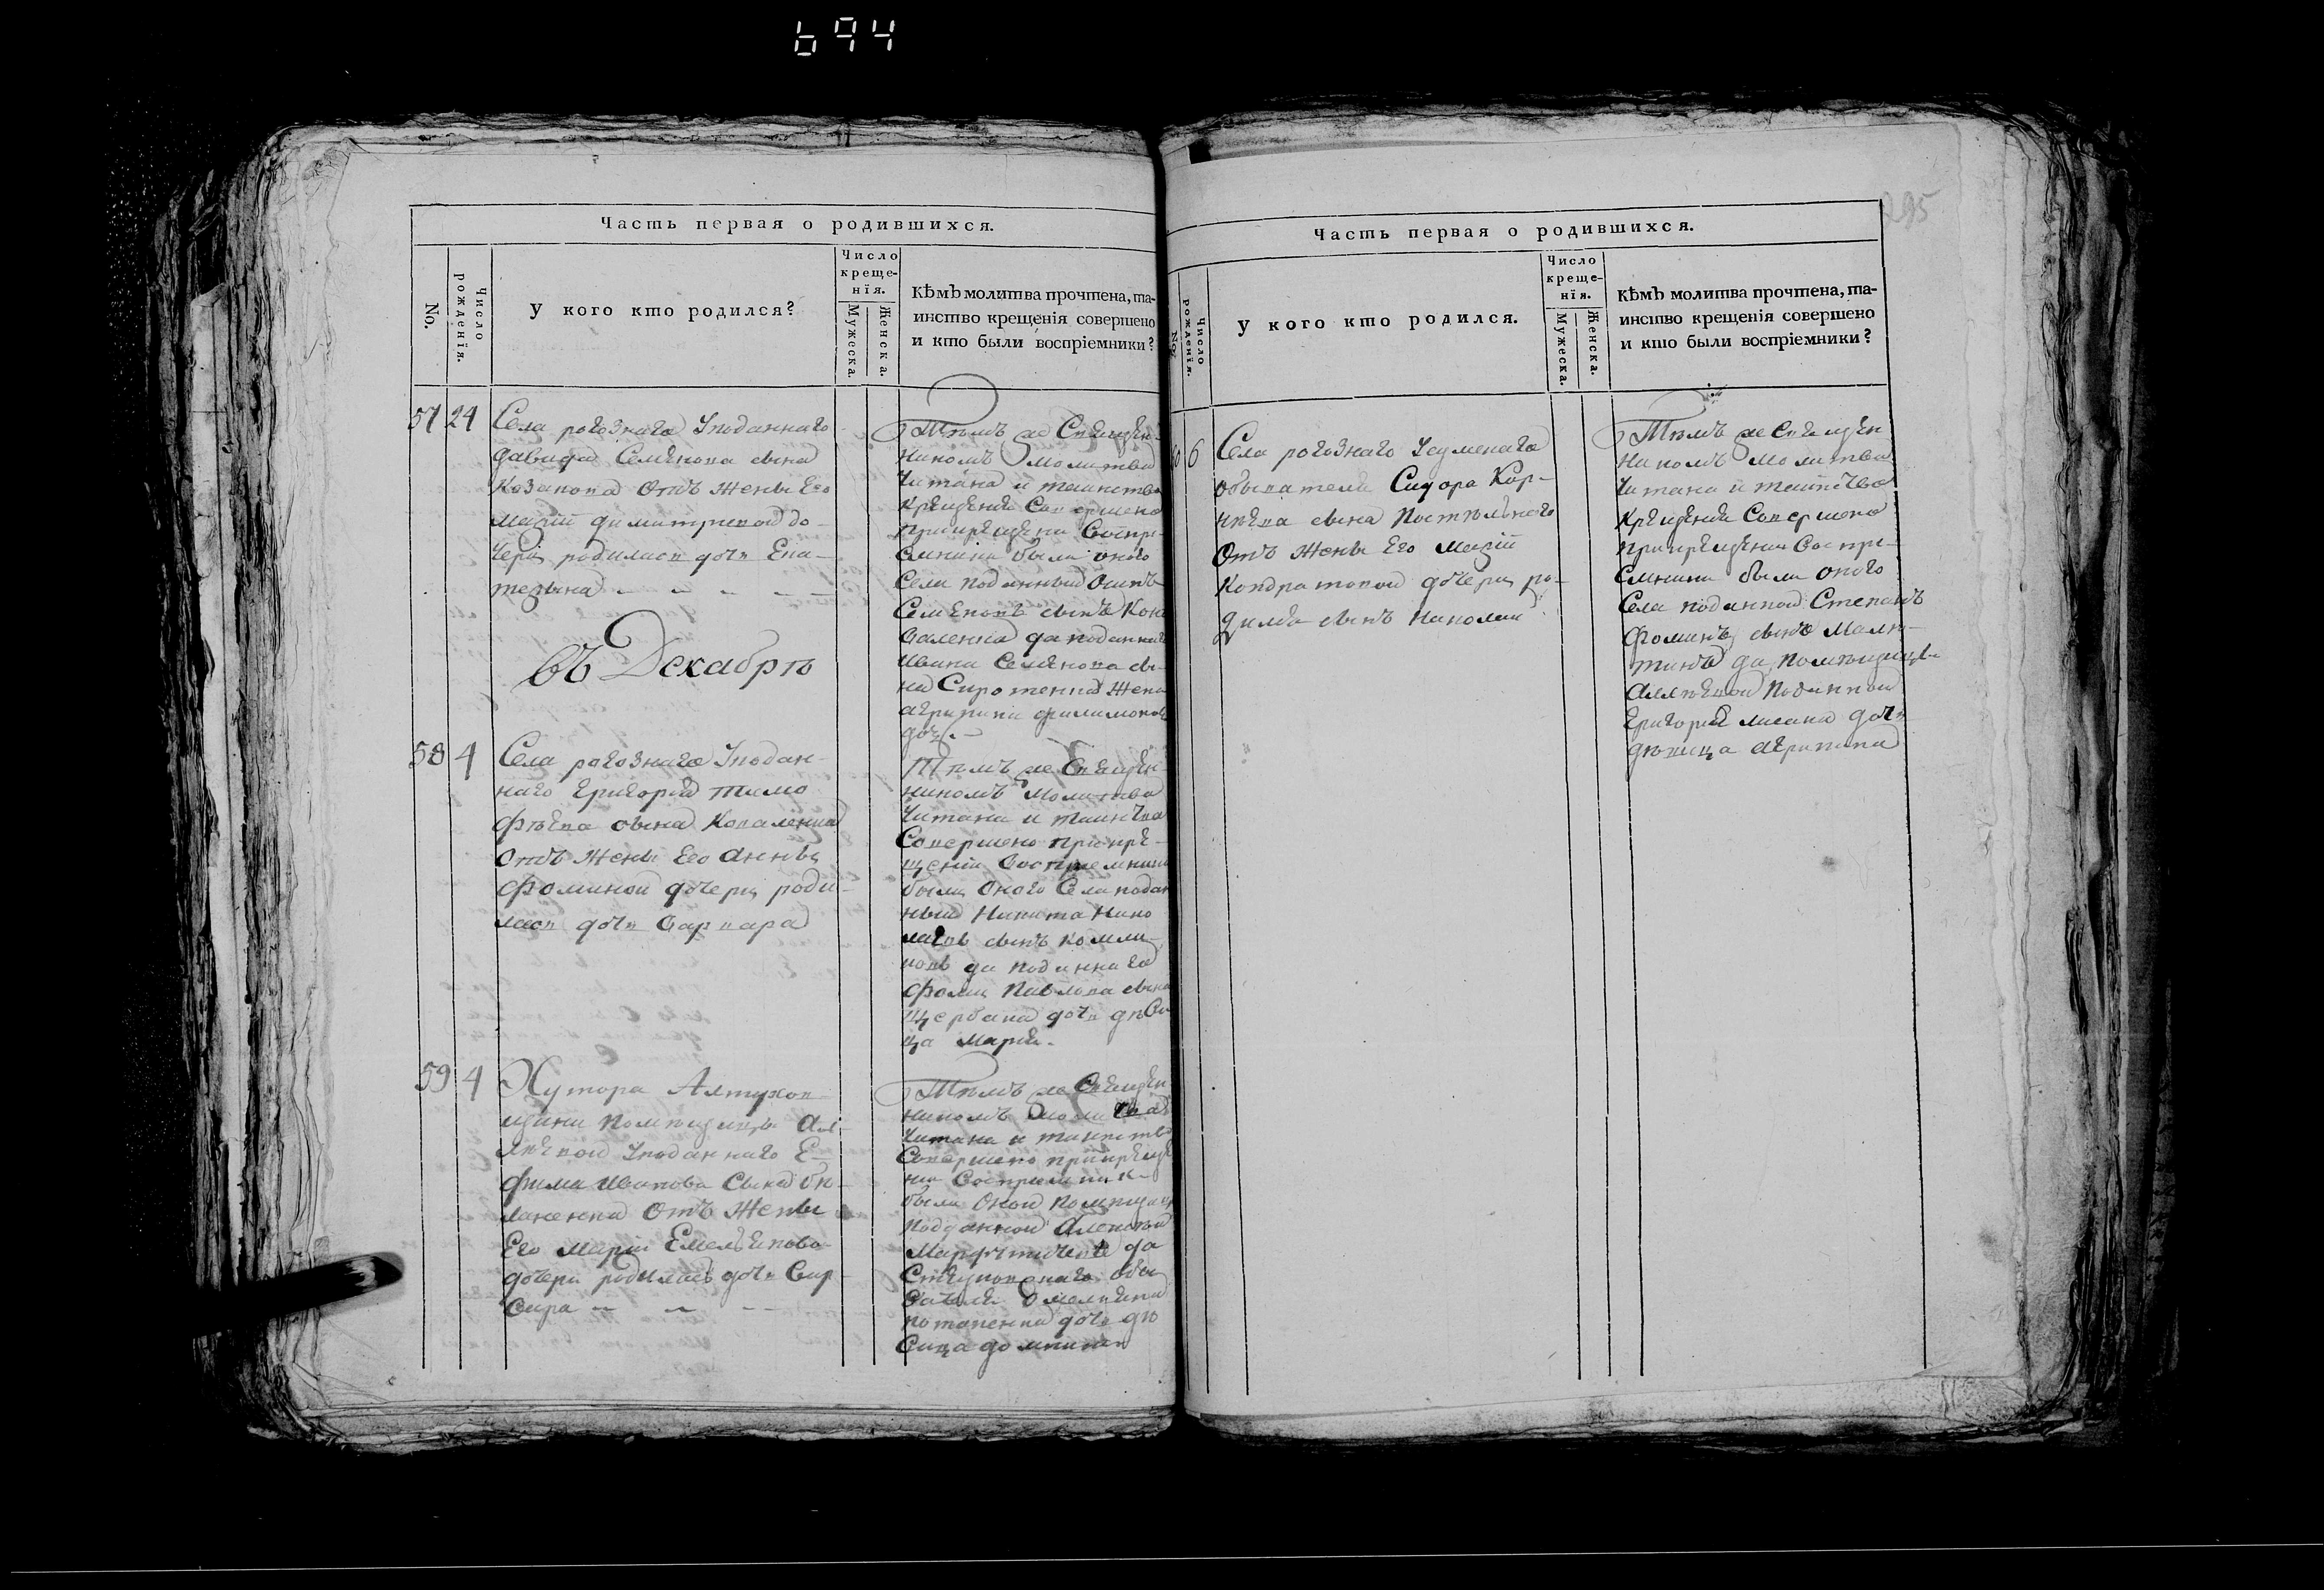 694
295
Часть первая о родившихся.
No.
Число рожденїя.
У кого кто родился?
Число креще-
нїя.
Мужеска.
Женска.
Кѣмъ молитва прочтена, та-
инство крещенія совершено
и кто были воспріемники?
57 24
Села рогознаго Уподаннаго
давида Семенова сына
Козакова Отъ жены Его
Маріи димитревой до-
чери родилася дочь Ека-
терына
Тѣмъ же Священ-
никомъ молитва
Читана и таинство
Крещения Совершено
При крещени Воспри-
емники были оного
Села подданный Осипъ
Семеновъ сынъ Кова
валенка да подданнаго
Ивана Семенова сы-
на Сиротенка Жена
агрипина филимонова
дочь
въ Декабрѣ
58 4
Села рогознаго Уподан-
наго Григория Тимо
фѣева сына Коваленка
отъ жены Его Анны
Фоминой дочери роди-
лася дочь Варвара
Тѣмъ же Священ-
никомъ молитва
Читана и таинства
Совершено При кре-
щении Воспремники
были Оного Села подан
ный Никита Нико
лаевъ сынъ
да подданнаго
Фомы Павлова сына
Щербака дочь дѣви
ца Мария
59 4
Хутора Алтухов
щини помѣщицы
Уподаннаго Е-
фима Иванова Сына
Отъ Жены
Его Маріи Емельяновой
дочери родилась дочь Вар-
вара
Тѣмъ же Священ
никомъ молитва
Читана и таинство
Совершено при креще
нии Восприемники
были Оной помѣщицы
подданной Алексѣй
да
обы
вателя Омельяна
потапенка дочь дѣ
вица
Часть первая о родившихся.
No.
Число рожденїя.
У кого кто родился.
Число креще-
нїя.
Мужеска.
Женска.
Кѣмъ молитва прочтена, та-
инство крещенія совершено
и кто были воспріемники?
60 6
Села рогознаго
обывателя Сидора Кор-
нѣева сына Постѣльнаго
Отъ жены Его Маріи
Кондратовой дочери ро-
дился сынъ Николай
Тѣмъ же Священ
никомъ молитва
Читана и таинство
Крещения Совершено
при крещении Воспри-
емники были оного
Села подданной Степанъ
Фоминъ сынъ Малю-
тинъ да помѣщицы
подданной
Григория лисака дочь
дѣвица агрипина